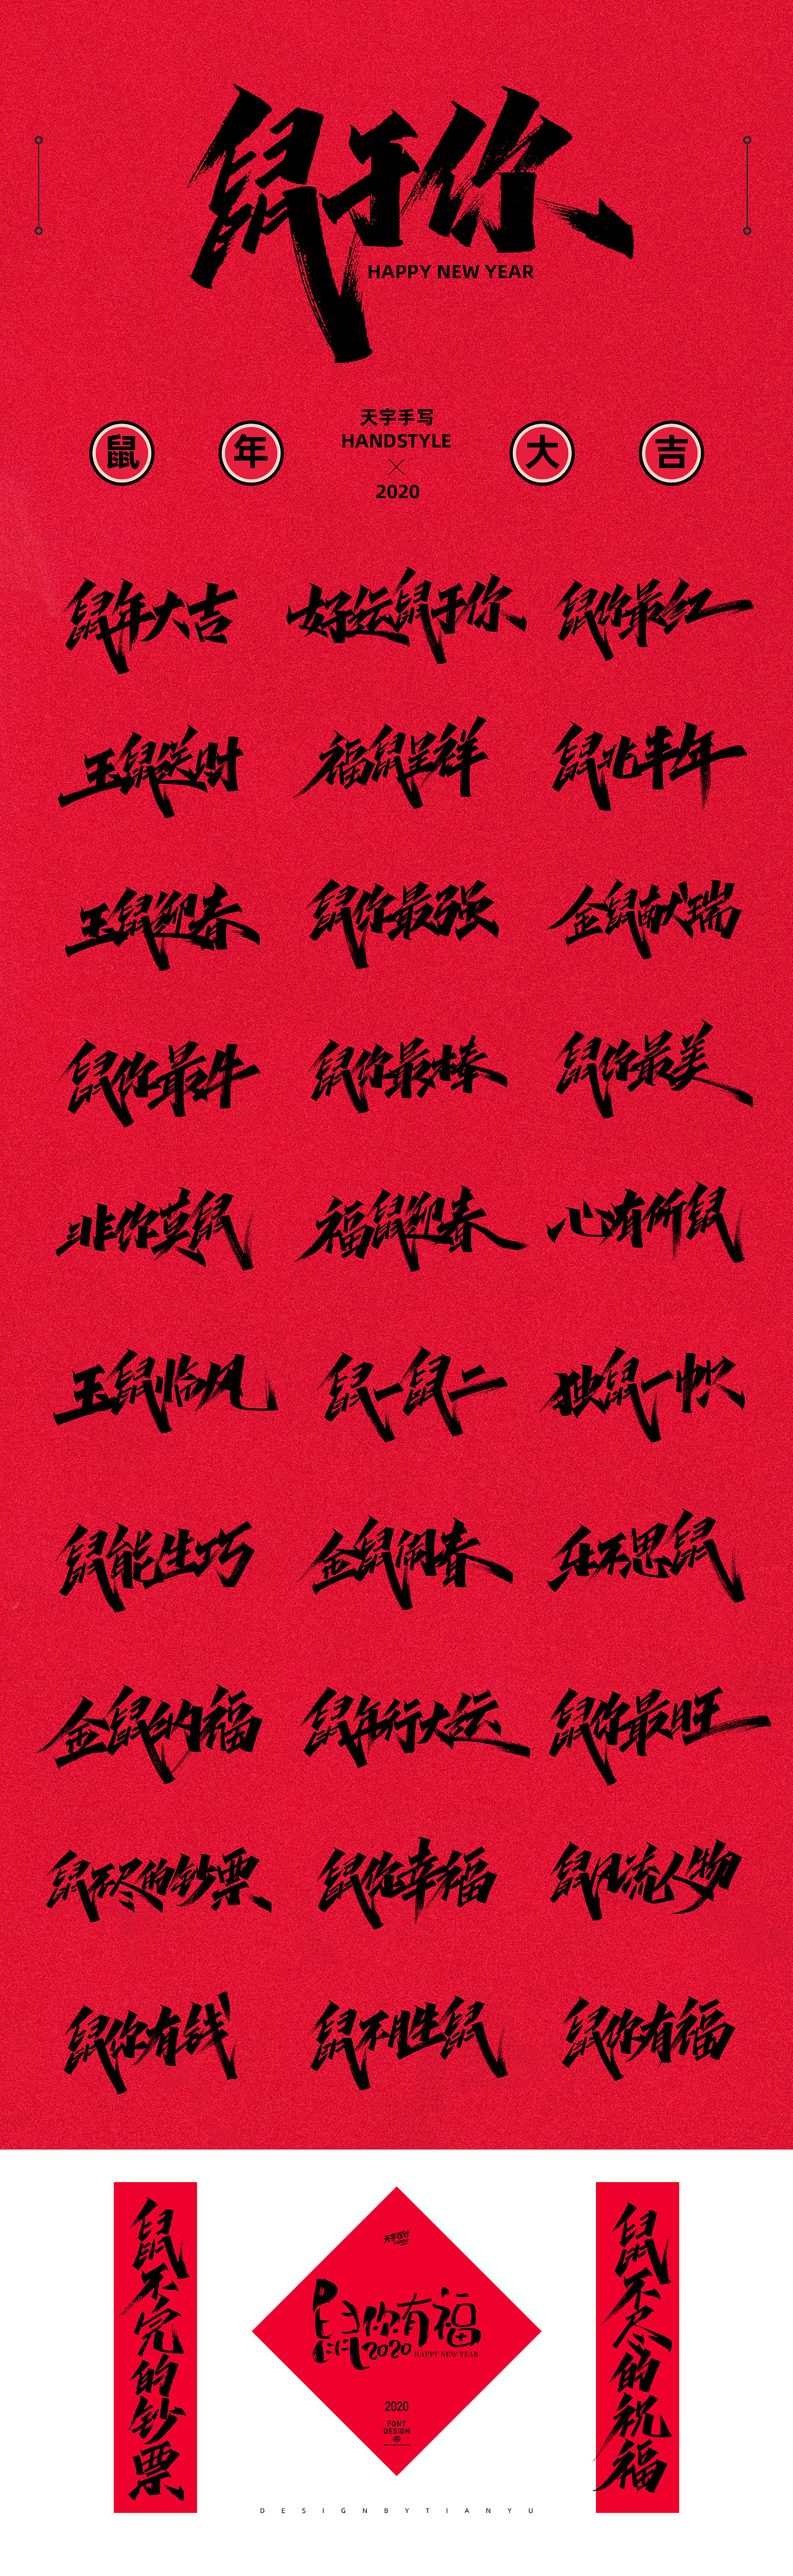 鼠于你
HAPPY NEW YEAR
鼠 年 大 吉
天宇手写
HANDSTYLE
2020
鼠年大吉 好运鼠于你 鼠你最红
玉鼠送财 福鼠呈祥 鼠兆丰年
玉鼠迎春 鼠你最强 金鼠献瑞
鼠你最牛 鼠你最棒 鼠你最美
非你莫鼠 福鼠迎春 心有所鼠
玉鼠临风 鼠一鼠二 独鼠一帜
鼠能生巧 金鼠闹春 乐不思鼠
金鼠纳福 鼠年行大运 鼠你最旺
鼠不尽的钞票 鼠你幸福 鼠风流人物
鼠你有钱 鼠不胜鼠 鼠你有福
鼠不完的钞票
天宇设计
鼠你有福
2020
HAPPY NEW YEAR
2020
FONT
DESIGN
鼠不尽的祝福
DESIGNBYTIANYU